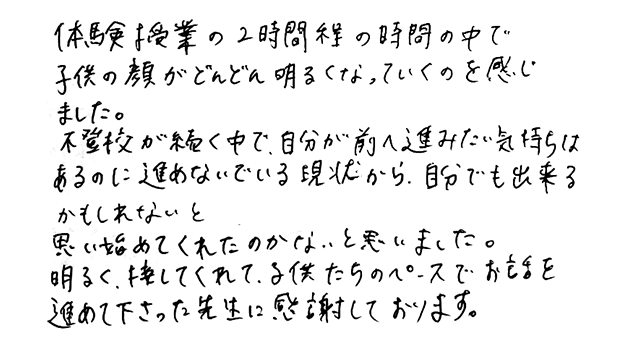 体験授業の2時間程の時間の中で
子供の顔がどんどん明るくなっていくのを感じ
ました。
不登校が続く中で、自分が前へ進みたい気持ちは
あるのに進めないでいる現状から、自分でも出来る
かもしれないと
思い始めてくれたのかな、と思いました。
明るく、接してくれて、子供たちのペースでお話を
進めて下さった先生に感謝しております。